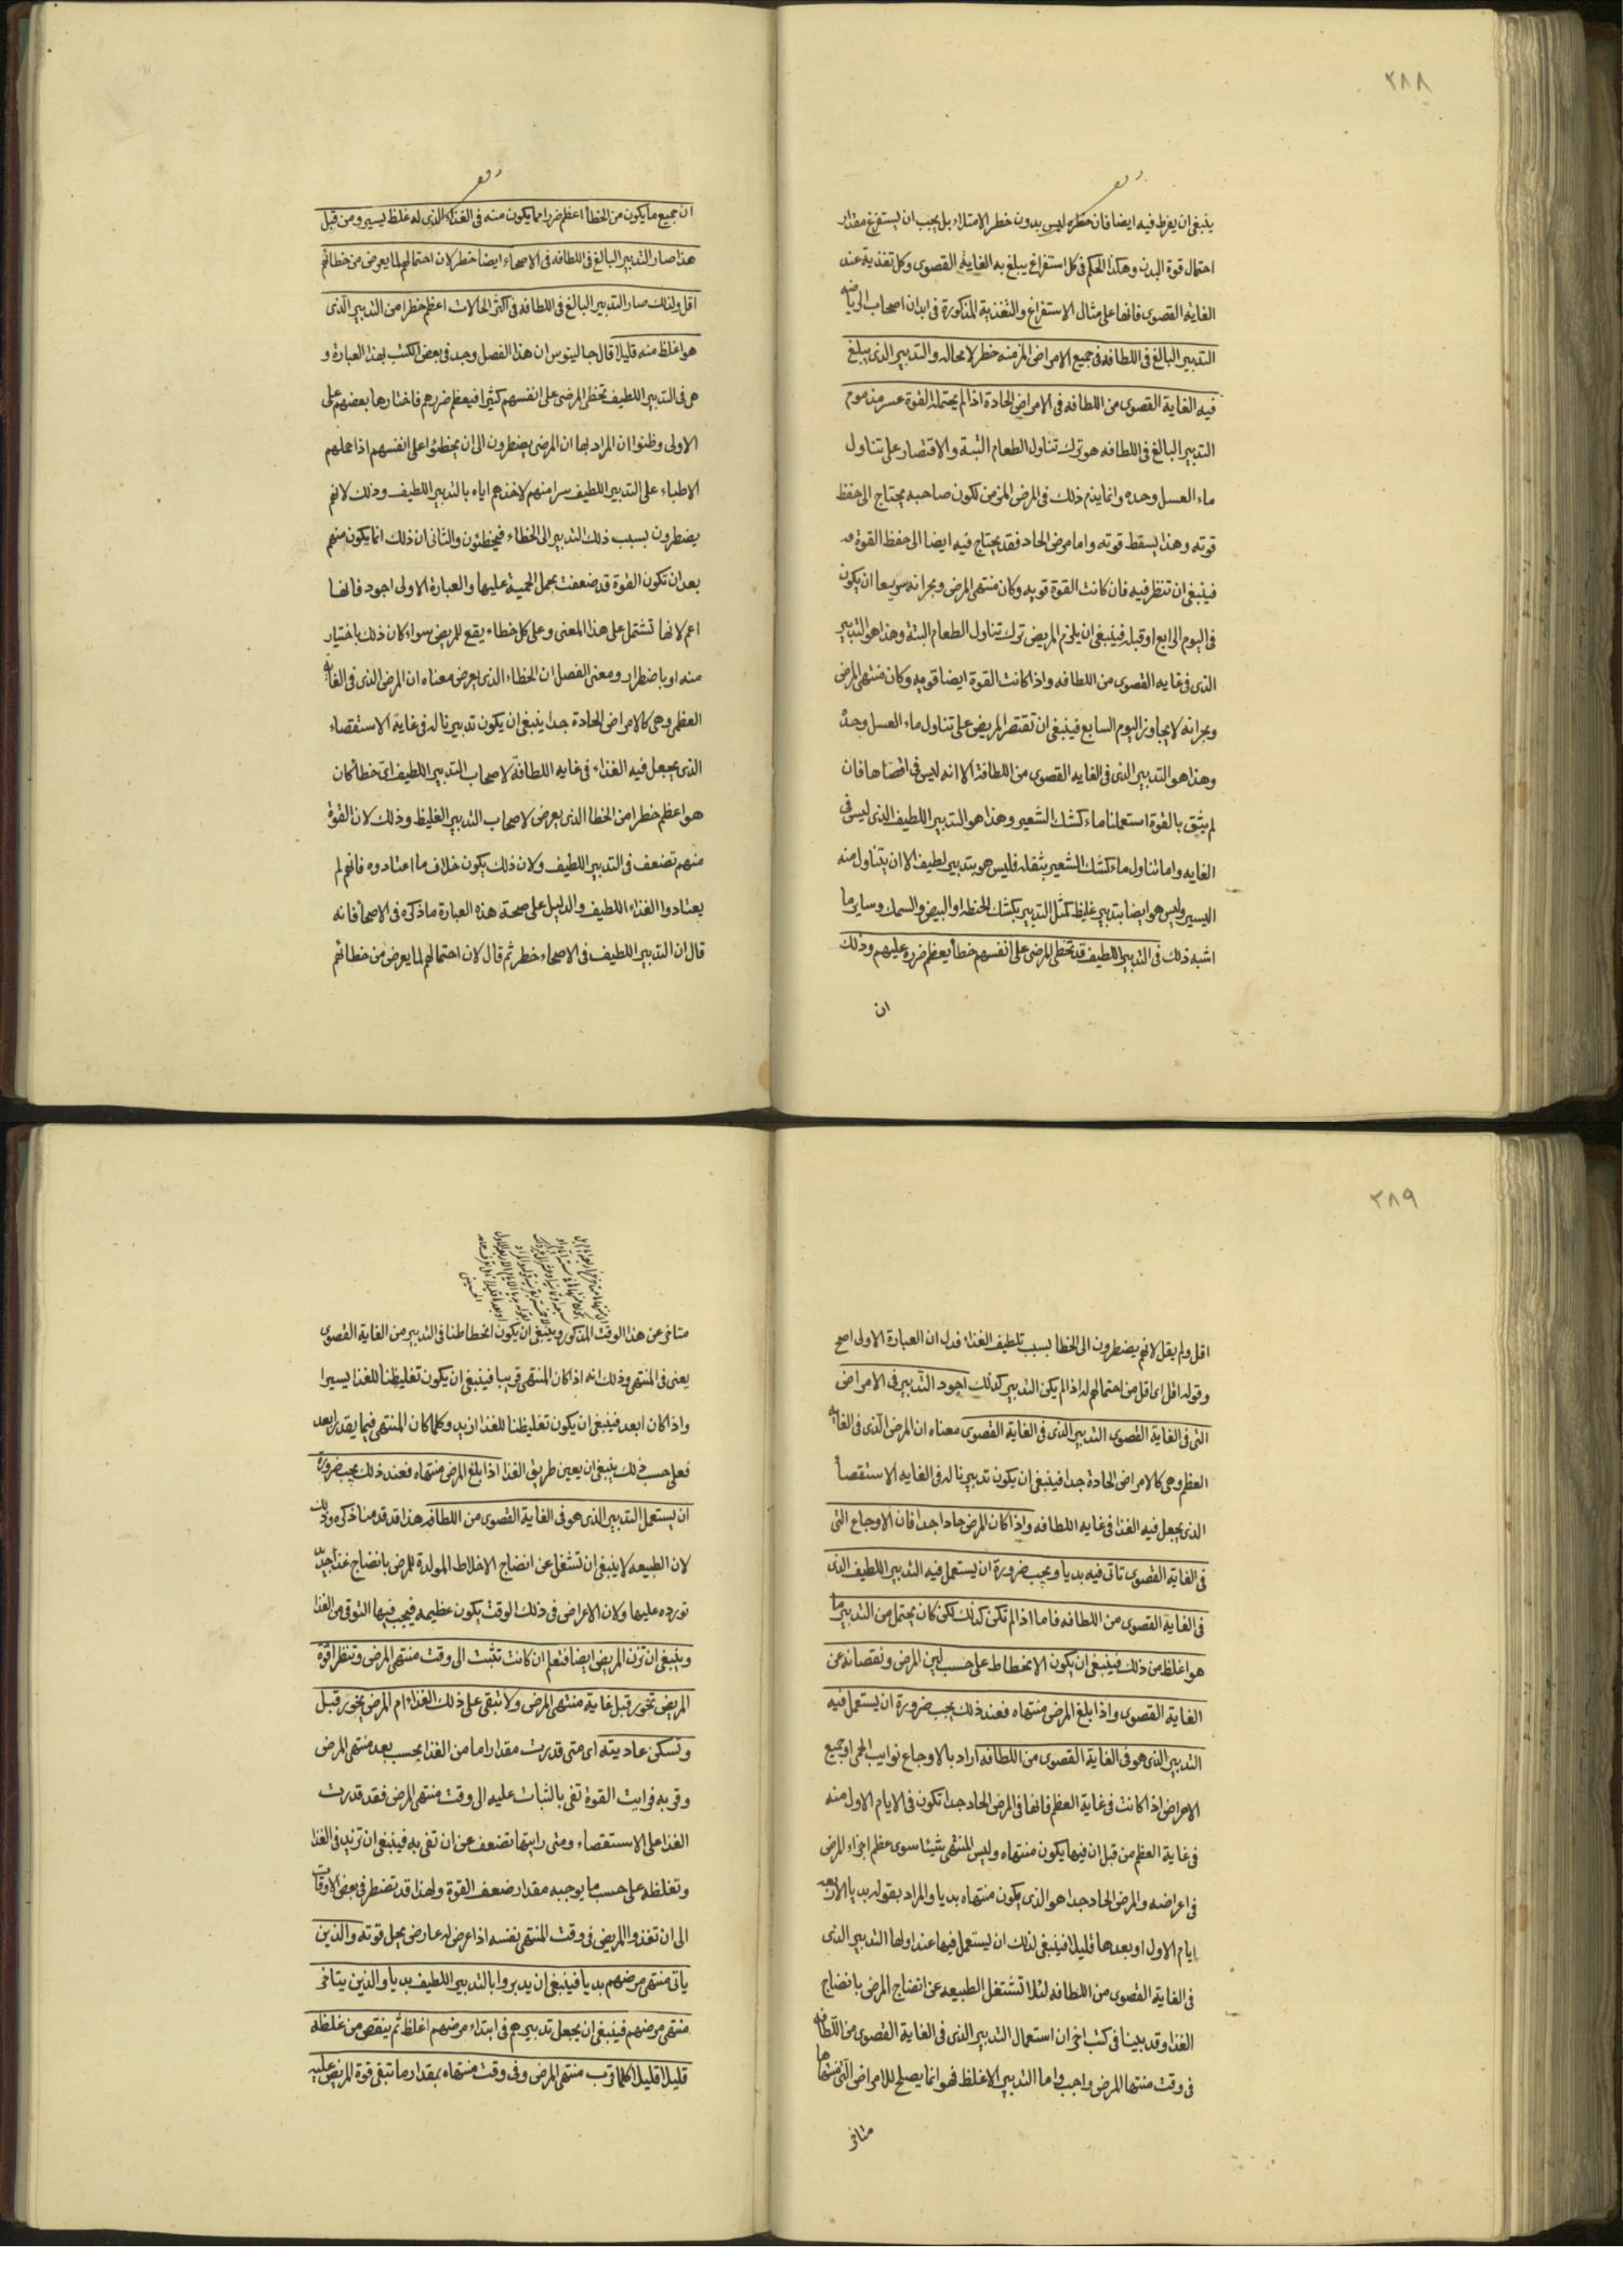 ٣٨٨
ينبغي ان يفرط فيه ايضا فان خطره ليس بدون خطر الامتلاء بل يجب ان يستفرغ مقدار
احتمال قوة البدن وهكذا الحكم في كل استفراغ يبلغ به الغاية القصوى وكل تغذية عند
الغايه القصوى فانها على مثال الاستفراغ والتغذية المذكورة في ابدان اصحاب الرياضه
التدبير البالغ في اللطافه في جميع الامراض المزمنه خطر لا محاله والتدبير الذى يبلغ
فيه الغاية القصوى من اللطافه في الامراض الحادة اذا لم يحتمله القوة عسر مذموم
التدبير البالغ في اللطافه هو ترك تناول الطعام البتة والاقتصار على تناول
ماء العسل وحده وانما يذم ذلك في المرض المزمن لكون صاحبه يحتاج الى حفظ
قوته وهذا يسقط قوته واما مرض الحاد فقد يحتاج فيه ايضا الى حفظ القوة
فينبغي ان تنظر فيه فان كانت القوة قويه وكان منتهى المرض وبحرانه سريعا ان يكون
في اليوم الرابع او قبله فينبغي ان يلزم المريض ترك تناول الطعام البتة وهذا هو التدبير
الذى في غايه القصوى من اللطافه واذا كانت القوة ايضا قويه وكان منتهى المرض
وبحرانه لا يجاوز اليوم السابع فينبغي ان تقتصر المريض على تناول ماء العسل وحده
وهذا هو التدبير الذى في الغايه القصوى من اللطافة الا انه ليس في اقصاها فان
لم يثق بالقوة استعملنا ماء كشك الشعير وهذا هو التدبير اللطيف الذى ليس في
الغايه واما تناول ماء كشك الشعير بثقله فليس هو بتدبير لطيف الا ان يتناول منه
اليسير وليس هو ايضا بتدبير غليظ كمثل التدبير بكشك الحنطه او البيض والسمك وساير ما
اشبه ذلك في التدبير اللطيف قد تخطى المرضى على انفسهم خطأ يعظم ضرره عليهم وذلك
ان
ان جميع ما يكون من الخطأ اعظم ضررا مما يكون منه في الغذاء الذى له غلظ يسير ومن قبل
هذا صار التدبير البالغ في اللطافه في الاصحاء ايضا خطر لان احتمالهم لما يعرض من خطائهم
اقل ولذلك صار التدبير البالغ في اللطافه في اكثر الحالات اعظم خطرا من التدبير الذى
هو اغلظ منه قليلا قال جالينوس ان هذا الفصل وجد في بعض الكتب بهذا العبارة و
هي في التدبير اللطيف تخطى المرضى على انفسهم كثيرا فيعظم ضررهم فاختارها بعضهم على
الاولى وظنوا ان المراد بها ان المرضى يضطرون الى ان يخطئوا على انفسهم اذا حملهم
الاطباء على التدبير اللطيف سرا منهم لاخذهم اياه بالتدبير اللطيف وذلك لانهم
يضطرون بسبب ذلك التدبير الى الخطاء فيخطئون والثانى ان ذلك انما يكون منهم
بعد ان تكون القوة قد ضعفت بحمل الحمية عليها والعبارة الاولى اجود فانها
اعم لانها تشتمل على هذا المعنى وعلى كل خطاء يقع للمريض سواء كان ذلك باختيار
منه او باضطرار ومعنى الفصل ان الخطاء الذى يعرض معناه ان المرض الذى في الغايه
العظمى وهي كالامراض الحادة جدا ينبغي ان يكون تدبيرنا له في غاية الاستقصاء
الذى يجعل فيه الغذاء في غايه اللطافة لاصحاب التدبير اللطيف اى خطأ كان
هو اعظم خطرا من الخطا الذى يعرض لاصحاب التدبير الغليظ وذلك لان القوة
منهم تضعف في التدبير اللطيف ولان ذلك يكون خلاف ما اعتادوه فانهم لم
يعتادوا الغذاء اللطيف والدليل على صحة هذه العبارة ما ذكره في الاصحا فانه
قال ان التدبير اللطيف في الاصحاء خطر ثم قال لان احتمالهم لما يعرض من خطائهم
٣٨٩
اقل ولم يقل لانهم يضطرون الى الخطا بسبب تلطيف الغذاء فدل ان العبارة الاولى اصح
وقوله اقل اى اقل من احتمالهم له اذا لم يكن التدبير كذلك اجود التدبير في الامراض
التى في الغاية القصوى التدبير الذى في الغاية القصوى معناه ان المرض الذى في الغايه
العظم وهي كالامراض الحادة جدا فينبغي ان يكون تدبيرنا له في الغايه الاستقصأ
الذى يجعل فيه الغذا في غايه اللطافه واذا كان المرض حادا جدا فان الاوجاع التى
في الغاية القصوى تاتى فيه بديا ويجب ضرورة ان يستعمل فيه التدبير اللطيف الذى
في الغاية القصوى من اللطافه فاما اذا لم تكن كذلك لكن كان يحتمل من التدبير ما
هو اغلظ من ذلك فينبغي ان يكون الانحطاط على حسب لين المرض ونقصانه عن
الغاية القصوى واذا بلغ المرض منتهاه فعند ذلك يجب ضرورة ان يستعمل فيه
التدبير الذى هو في الغاية القصوى من اللطافه اراد بالاوجاع نوايب الحمى او جميع
الاعراض اذا كانت في غاية العظم فانها في المرض الحاد جدا تكون في الايام الاول منه
في غاية العظم من قبل ان فيها يكون منتهاه وليس المنتهى شيئا سوى عظم اجزاء المرض
في اعراضه والمرض الحاد جدا هو الذى يكون منتهاه بديا والمراد بقوله بديا الاربعه
ايام الاول او بعدها قليلا فينبغي لذلك ان يستعمل فيها عند اولها التدبير الذى
في الغاية القصوى من اللطافه لئلا تشتغل الطبيعه عن انضاج المرض بانضاج
الغذا وقد بينا في كتب اخر ان استعمال التدبير الذى في الغاية القصوى من اللطافه
في وقت منتها المرض واجب واما التدبير الاغلظ فهو انما يصلح للامراض التى منتهاها
متاخر
متاخر عن هذا الوقت المذكور وينبغي ان يكون انحطاطنا في التدبير من الغاية القصوى
يعنى في المنتهى وذلك انه اذا كان المنتهى قريبا فينبغي ان يكون تغليظنا للغذا يسيرا
واذا كان ابعد فينبغي ان يكون تغليظنا للغذا ازيد وكلما كان المنتهى فيما يقدر ابعد
فعلى حسب ذلك ينبغي ان يعين طريق الغذا اذا بلغ المرض منتهاه فعند ذلك يجب ضرورة
ان يستعمل التدبير الذى هو في الغاية القصوى من اللطافه هذا قد قدمنا ذكره وذلك
لان الطبيعه لا ينبغي ان تشتغل عن انضاج الاخلاط المولدة للمرض بانضاج غذا جديد
تورده عليها ولان الاعراض في ذلك الوقت يكون عظيمه فيجب فيها التوقى من الغذا
وينبغي ان تزن المريض ايضا فتعلم ان كانت تثبت الى وقت منتهى المرض وتنظر اقوة
المريض تخور قبل غاية منتهى المرض ولا تبقى على ذلك الغذاء ام المرض يخور قبل
وتسكن عاديته اى متى قدرت مقدارا ما من الغذا بحسب بعد منتهى المرض
وقربه فرايت القوة تفى بالثبات عليه الى وقت منتهى المرض فقد قدرت
الغذا على الاستقصاء ومتى رايتها تضعف عن ان تفى به فينبغي ان تزيد في الغذا
وتغلظه على حسب ما يوجبه مقدار ضعف القوة ولهذا قد تضطر في بعض الاوقات
الى ان تغذوا المريض في وقت المنتهى نفسه اذا عرض له عارض يحل قوته والذين
ياتى منتهى مرضهم بديا فينبغي ان يدبروا بالتدبير اللطيف بديا والذين يتاخر
منتهى مرضهم فينبغي ان يجعل تدبيرهم في ابتداء مرضهم اغلظ ثم ينقص من غلظه
قليلا قليلا كلما قرب منتهى المرض وفى وقت منتهاه بمقدار ما تبقى قوة المريض عليه